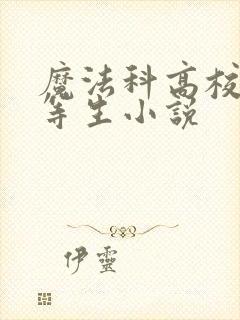 魔法科高校
等生小説
伊靈